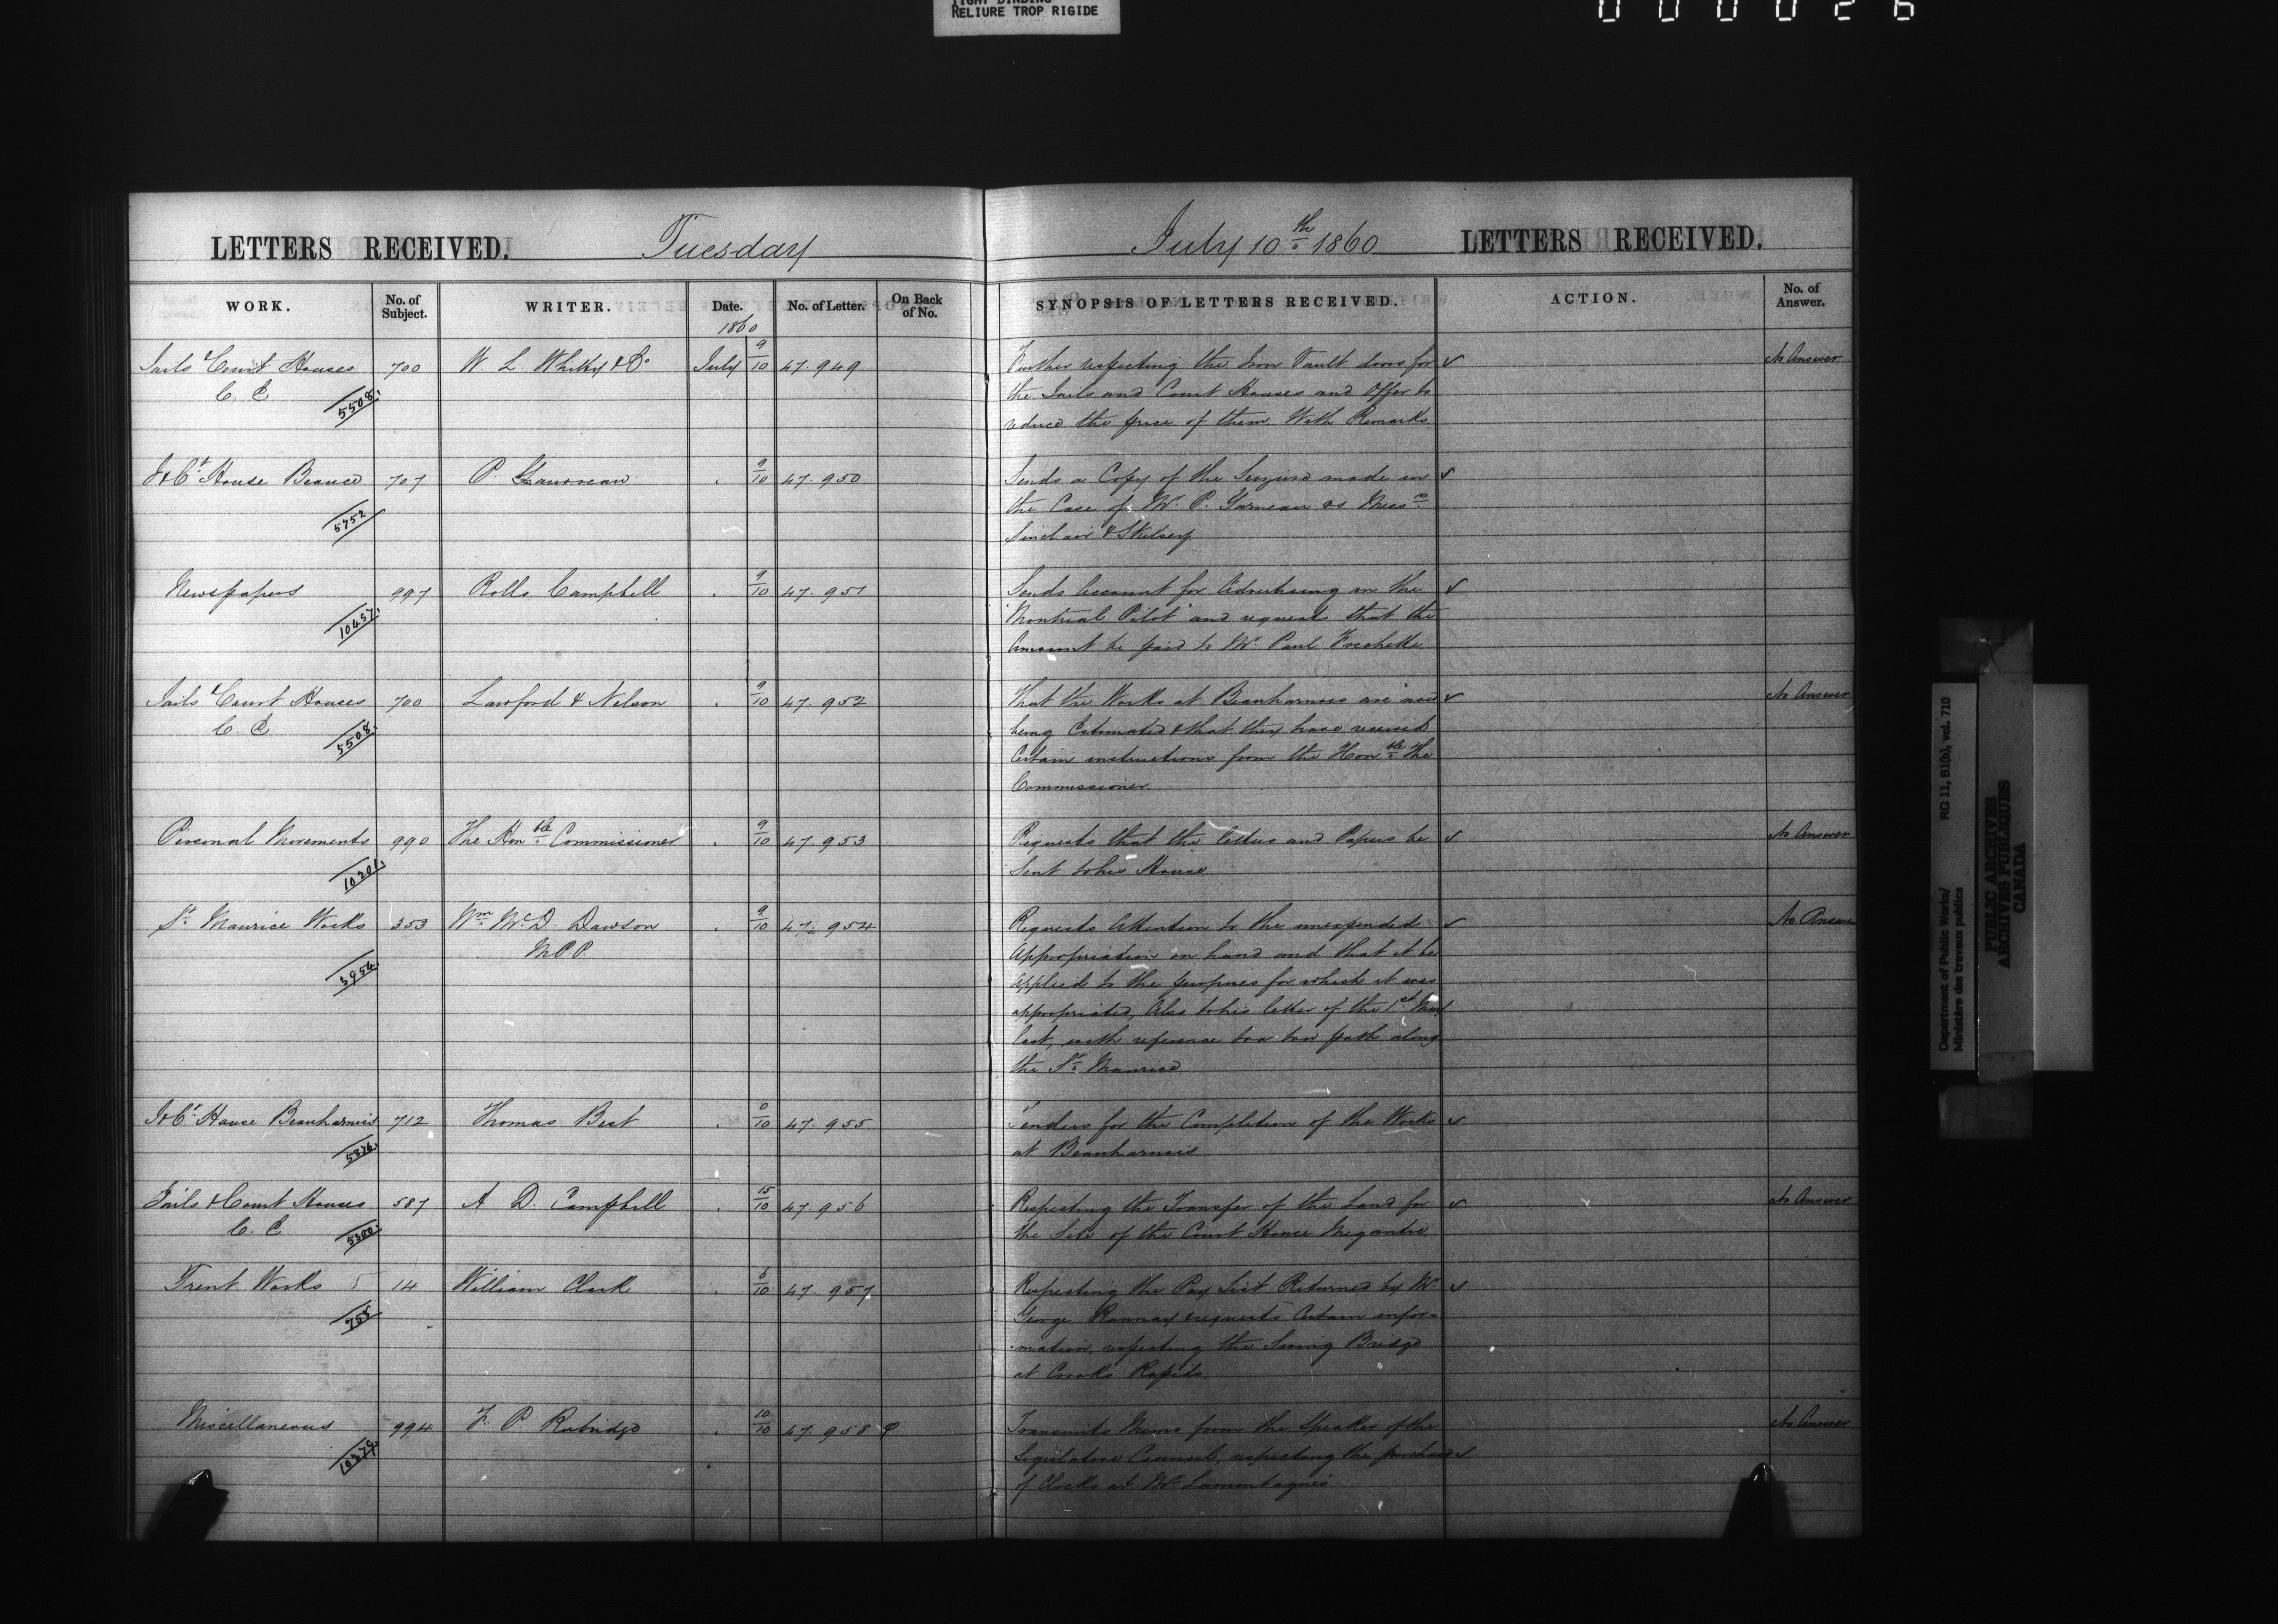 TIGHT BINDING
RELIURE TROP RIGIDE
000026
LETTERS RECEIVED. Tuesday July 10th 1860 LETTERS RECEIVED.
WORK. No. of Subject. WRITER. Date. 1860 No. of Letter. On Back of No. SYNOPSIS OF LETTERS RECEIVED. ACTION. No. of Answer.
Jails & Court Houses 700 W. L. & Co July 9/10 47.949 Further respecting the Iron Vault doors for ✓ No Answer
C. E 5508 the Jails and Court Houses and Offer to
reduce the price of them. With Remarks
J & Ct House Beauce 707 P. 9/10 47.950 Sends a Copy of the Seizure made in ✓
5752 the Case of Mr. P. Garneau vs Messrs
Sinclair & Skelsey
Newspapers 997 Rollo Campbell . 9/10 47.951 Sends Account for Advertising in the ✓
10457 "Montreal Pilot" and request that the
Amount be paid to Mr. Paul Frechette
Jails & Court Houses 700 Lawford & Nelson . 9/10 47.952 That the Works at Beauharnois are now ✓ No Answer
C. E 5508 being Estimated & that they have received
Certain instructions from the Honble the
Commissioner
Personal Movements 990 The Honble Commissioner . 9/10 47.953 Requests that the letters and Papers be ✓ No Answer
10201 Sent to his House
St Maurice Works 353 Wm McD. Dawson . 9/10 47.954 Requests Attention to the unexpended ✓ No Answer
3954 M P P Appropriation on hand and that it be
applied to the purposes for which it was
appropriated, Also to his letter of the 1st May
last, with reference to a tow path along
the St Maurice
J & Ct House Beauharnois 712 Thomas Best . /10 47.955 Tenders for the Completion of the Works ✓
5876 at Beauharnois
Jails & Court Houses 587 A. D. Campbell . 15/10 47.956 Respecting the Transfer of the Land for ✓ No Answer
C. E 5300 the Site of the Court House Megantic
Trent Works 5 14 William Clark . 6/10 47.957 Respecting the Pay List Returned by Mr ✓
758 George Rannay & requests Certain infor-
-mation, respecting the Swing Bridge
at Crooks Rapids
Miscellaneous 994 F. P. Rubidge . 10/10 47.958 Transmits Memo from the Speaker of the No Answer
Legislative Council, respecting the purchase ✓
of Clocks at Mr Lamontagnes
Department of Public Works/ RG 11, B1(b), vol. 710
Ministère des travaux publics
PUBLIC ARCHIVES
ARCHIVES PUBLIQUES
CANADA